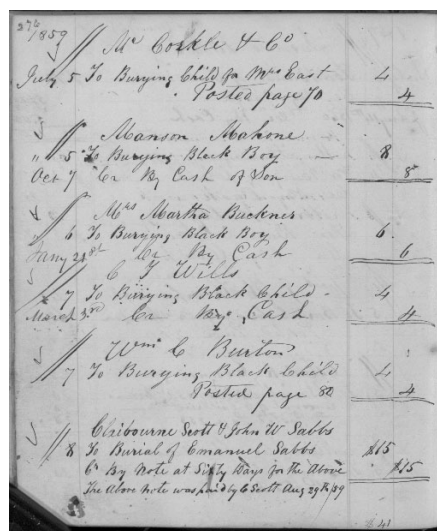 376
1859
Mc Corkle & Co
July 5 To Burying Child for Mrs East 4
Posted page 70 4
Manson Mahone
" 5 To Burying Black Boy 8
Oct 7 Cr By Cash of Son 8
Mrs Martha Buckner
6 To Burying Black Boy 6
Jany 28th Cr By Cash 6
C T Wills
7 To Burying Black Child 4
March 3rd Cr By Cash 4
Wm C Burton
7 To Burying Black Child 4
Posted page 82 4
Claibourne Scott & John W Sabbs
8 To Burial of Emanuel Sabbs $15
Cr By Note at Sixty Days for the Above $15
The Above note was paid by C Scott Aug 29th/59
41